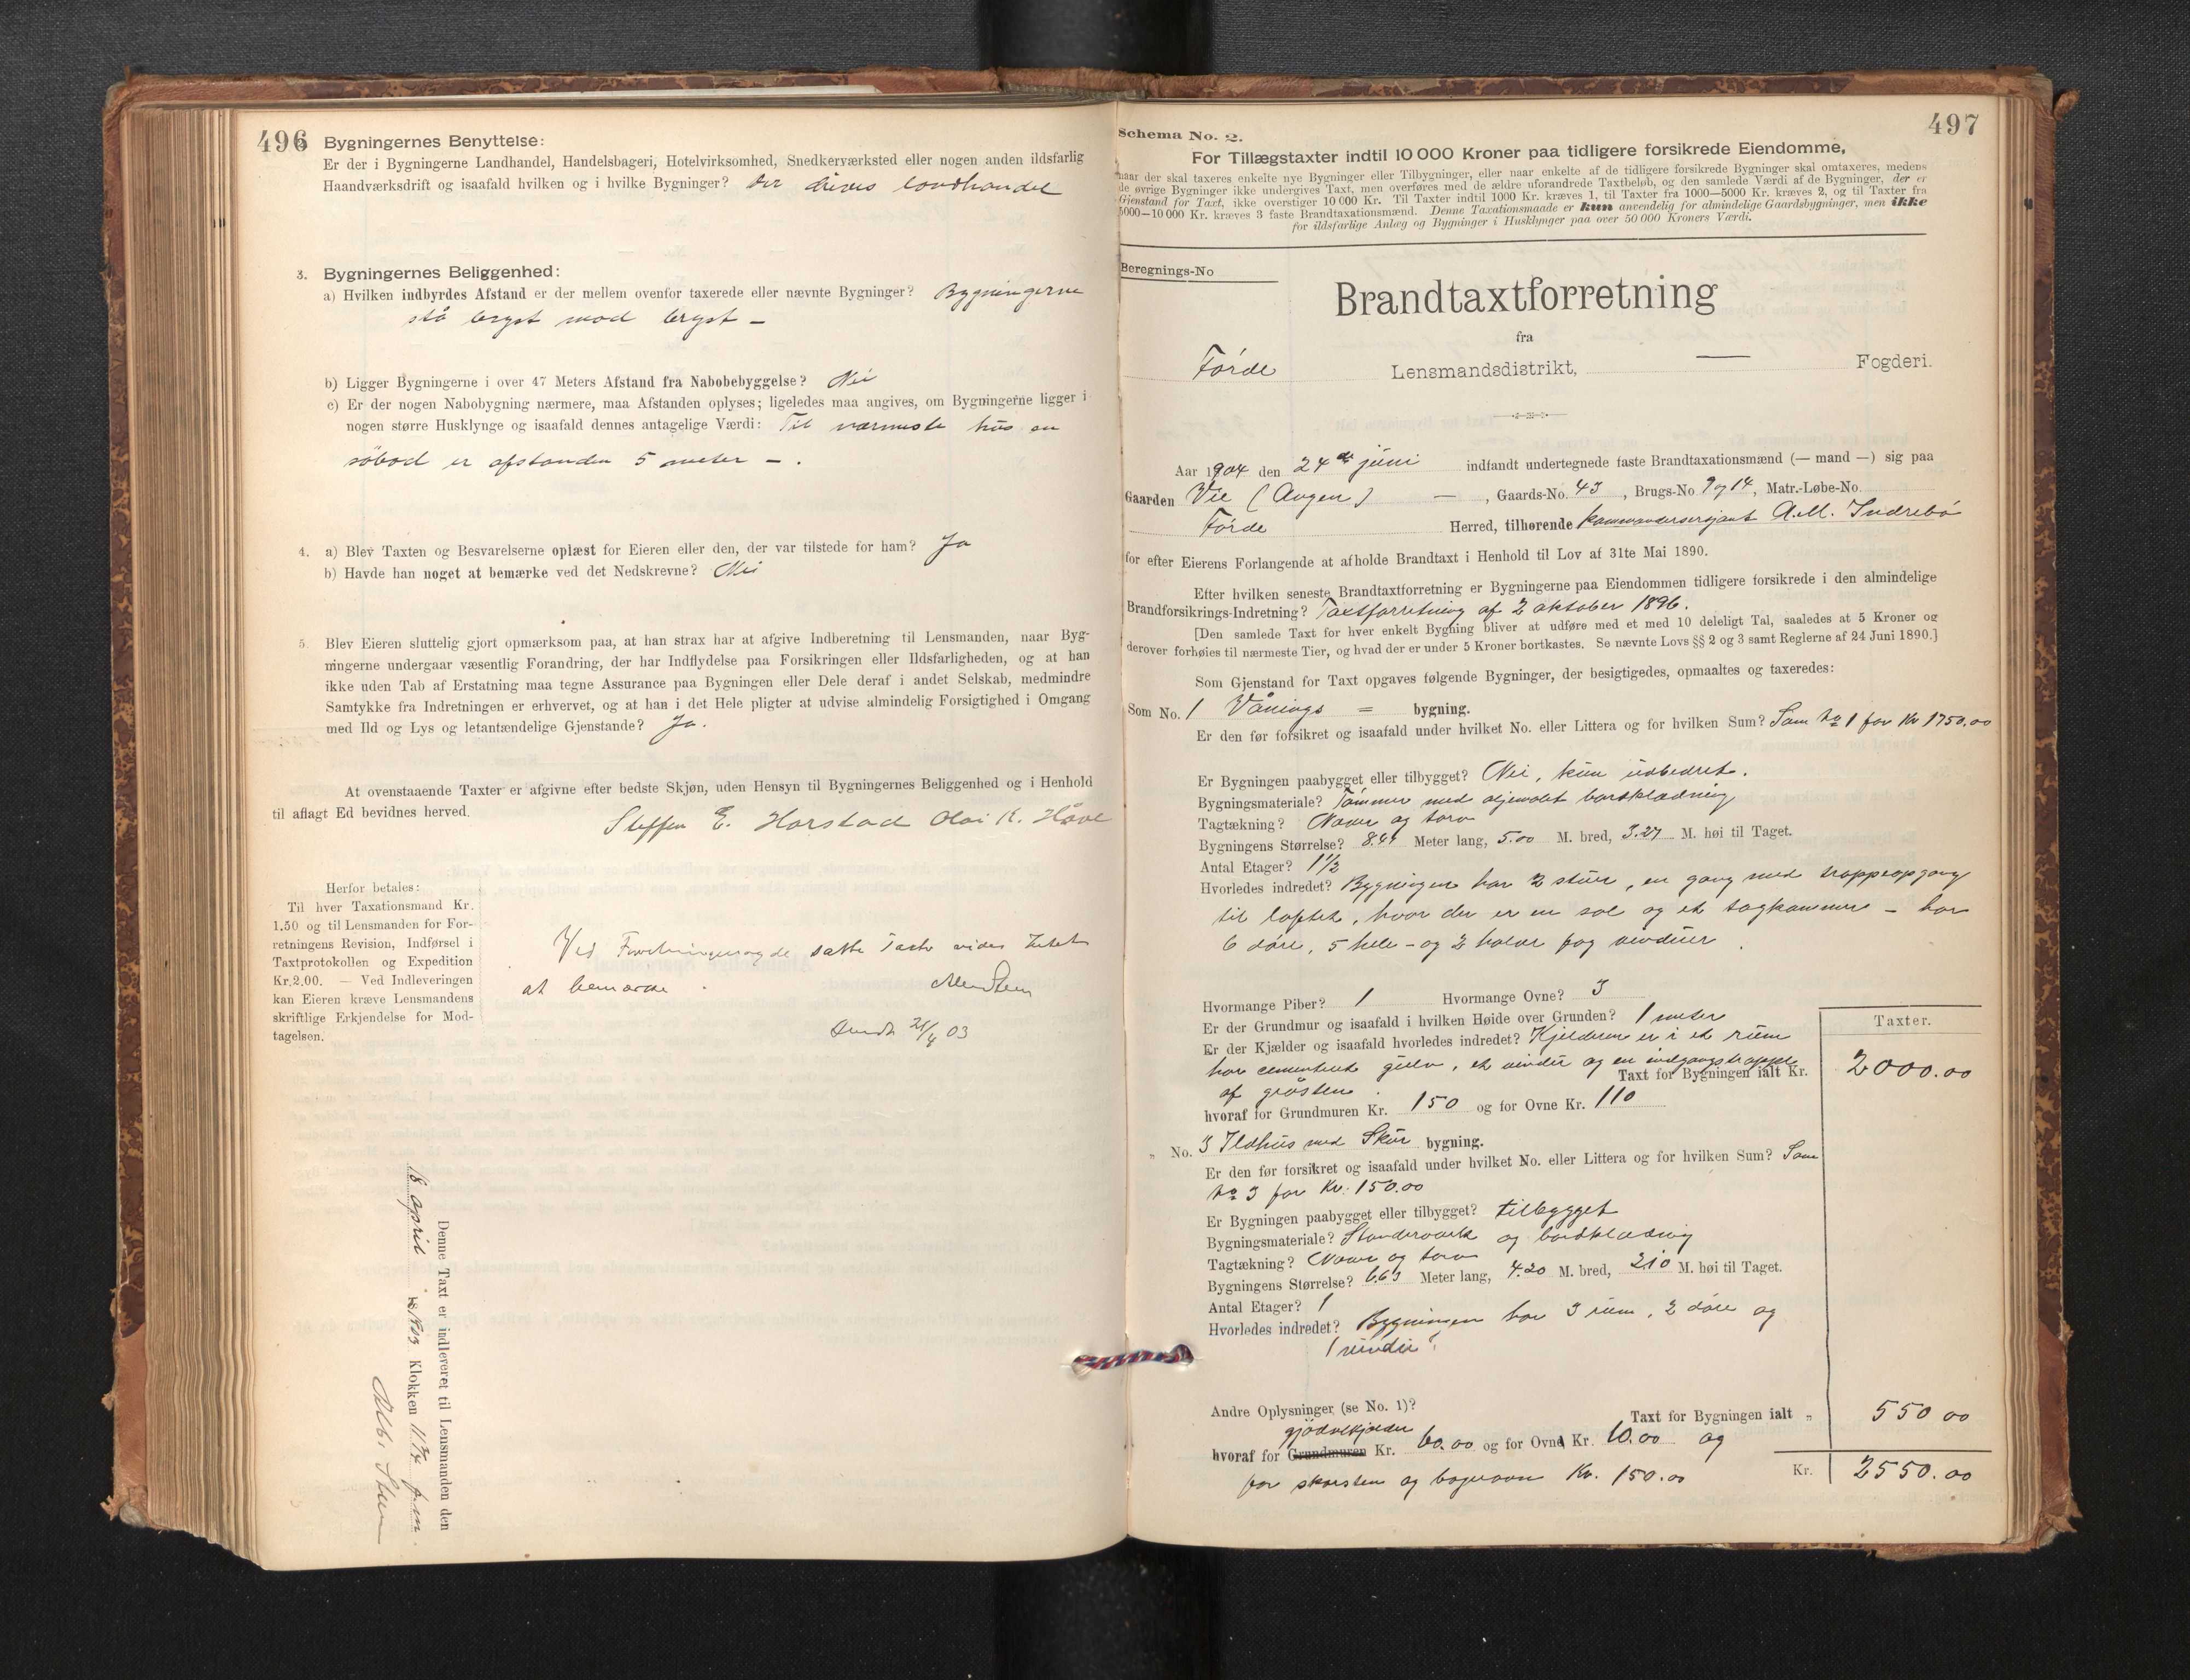 496
Bygningernes Benyttelse:
Er der i Bygningerne Landhandel, Handelsbageri, Hotelvirksomhed, Snedkerværksted eller nogen anden ildsfarlig
Haandværksdrift og isaafald hvilken og i hvilke Bygninger? Der drives landhandel
3. Bygningernes Beliggenhed:
a) Hvilken indbyrdes Afstand er der mellem ovenfor taxerede eller nævnte Bygninger? Bygningerne
stå bryst mod bryst —
b) Ligger Bygningerne i over 47 Meters Afstand fra Nabobebyggelse? Nei
c) Er der nogen Nabobygning nærmere, maa Afstanden oplyses; ligeledes maa angives, om Bygningerne ligger i
nogen større Husklynge og isaafald dennes antagelige Værdi: Til nærmeste hus en
söbod er afstanden 5 meter — .
4. a) Blev Taxten og Besvarelserne oplæst for Eieren eller den, der var tilstede for ham? Ja
b) Havde han noget at bemærke ved det Nedskrevne? Nei
5. Blev Eieren sluttelig gjort opmærksom paa, at han strax har at afgive Indberetning til Lensmanden, naar Byg-
ningerne undergaar væsentlig Forandring, der har Indflydelse paa Forsikringen eller Ildsfarligheden, og at han
ikke uden Tab af Erstatning maa tegne Assurance paa Bygningen eller Dele deraf i andet Selskab, medmindre
Samtykke fra Indretningen er erhvervet, og at han i det Hele pligter at udvise almindelig Forsigtighed i Omgang
med Ild og Lys og letantændelige Gjenstande? Ja.
At ovenstaaende Taxter er afgivne efter bedste Skjøn, uden Hensyn til Bygningernes Beliggenhed og i Henhold
til aflagt Ed bevidnes herved.
Steffen E. Horstad Olai K. Håve
Herfor betales:
Til hver Taxationsmand Kr.
1.50 og til Lensmanden for For-
retningens Revision, Indførsel i
Taxtprotokollen og Expedition
Kr. 2.00. — Ved Indleveringen
kan Eieren kræve Lensmandens
skriftlige Erkjendelse for Mod-
tagelsen.
Ved satte Taxter vides Intet
at bemærke.
21/4 03
Denne Taxt er indleveret til Lensmanden den
18 april 1903 Klokken 11 3/4 fm
497
Schema No. 2.
For Tillægstaxter indtil 10 000 Kroner paa tidligere forsikrede Eiendomme,
naar der skal taxeres enkelte nye Bygninger eller Tilbygninger, eller naar enkelte af de tidligere forsikrede Bygninger skal omtaxeres, medens
de øvrige Bygninger ikke undergives Taxt, men overføres med de ældre uforandrede Taxtbeløb, og den samlede Værdi af de Bygninger, der er
Gjenstand for Taxt, ikke overstiger 10 000 Kr. Til Taxter indtil 1000 Kr. kræves 1, til Taxter fra 1000—5000 Kr. kræves 2, og til Taxter fra
5000—10 000 Kr. kræves 3 faste Brandtaxationsmænd. Denne Taxationsmaade er kun anvendelig for almindelige Gaardsbygninger, men ikke
for ildsfarlige Anlæg og Bygninger i Husklynger paa over 50 000 Kroners Værdi.
Beregnings-No
Brandtaxtforretning
fra
Förde Lensmandsdistrikt, — Fogderi.
Aar 1904 den 24de juni indfandt undertegnede faste Brandtaxationsmænd (— mand —) sig paa
Gaarden Vie (Augen) — , Gaards-No. 43, Brugs-No. 9 og 14, Matr.-Løbe-No.
Förde Herred, tilhørende kommandersersjant A.M. Indrebö
for efter Eierens Forlangende at afholde Brandtaxt i Henhold til Lov af 31te Mai 1890.
Efter hvilken seneste Brandtaxtforretning er Bygningerne paa Eiendommen tidligere forsikrede i den almindelige
Brandforsikrings-Indretning? Taxtforretning af 2 oktober 1896.
[Den samlede Taxt for hver enkelt Bygning bliver at udføre med et med 10 deleligt Tal, saaledes at 5 Kroner og
derover forhøies til nærmeste Tier, og hvad der er under 5 Kroner bortkastes. Se nævnte Lovs §§ 2 og 3 samt Reglerne af 24 Juni 1890.]
Som Gjenstand for Taxt opgaves følgende Bygninger, der besigtigedes, opmaaltes og taxeredes:
Som No. 1 Vånings = bygning.
Er den før forsikret og isaafald under hvilket No. eller Littera og for hvilken Sum? Som No 1 for Kr 1750.00
Er Bygningen paabygget eller tilbygget? Nei, kun udbedret.
Bygningsmateriale? Tømmer med oljemalt bordklædning
Tagtækning? Næver og torv
Bygningens Størrelse? 8.41 Meter lang, 5.00 M. bred, 3.27 M. høi til Taget.
Antal Etager? 1 1/2
Hvorledes indredet? Bygningen har 2 stuer, en gang med trappeopgang
til loftet, hvor der er en sal og et tagkammer — har
6 døre, 5 hele- og 2 halve fag vinduer.
Hvormange Piber? 1 Hvormange Ovne? 3
Er der Grundmur og isaafald i hvilken Høide over Grunden? 1 meter
Er der Kjælder og isaafald hvorledes indredet? Kjelderen er i et rum
har cementeret gulv, et vindu og en indgangstrappe
af gråsten.
Taxter.
Taxt for Bygningen ialt Kr. 2000.00
hvoraf for Grundmuren Kr. 150 og for Ovne Kr. 110
„ No. 3 Ildhus med Skur bygning.
Er den før forsikret og isaafald under hvilket No. eller Littera og for hvilken Sum? Som
No 3 for Kr. 150.00
Er Bygningen paabygget eller tilbygget? tilbygget
Bygningsmateriale? Standerværk og bordklædning
Tagtækning? Næver og torv
Bygningens Størrelse? 6.63 Meter lang, 4.20 M. bred, 2.10 M. høi til Taget.
Antal Etager? 1
Hvorledes indredet? Bygningen har 3 rum, 2 döre og
1 vindu.
Andre Oplysninger (se No. 1)?
Taxt for Bygningen ialt „ 550 00
gjödselkjælder
hvoraf for Grundmuren Kr. 60.00 og for Ovne Kr. 10.00 og
for skorsten og bagerovn Kr. 150.00
Kr. 2550.00